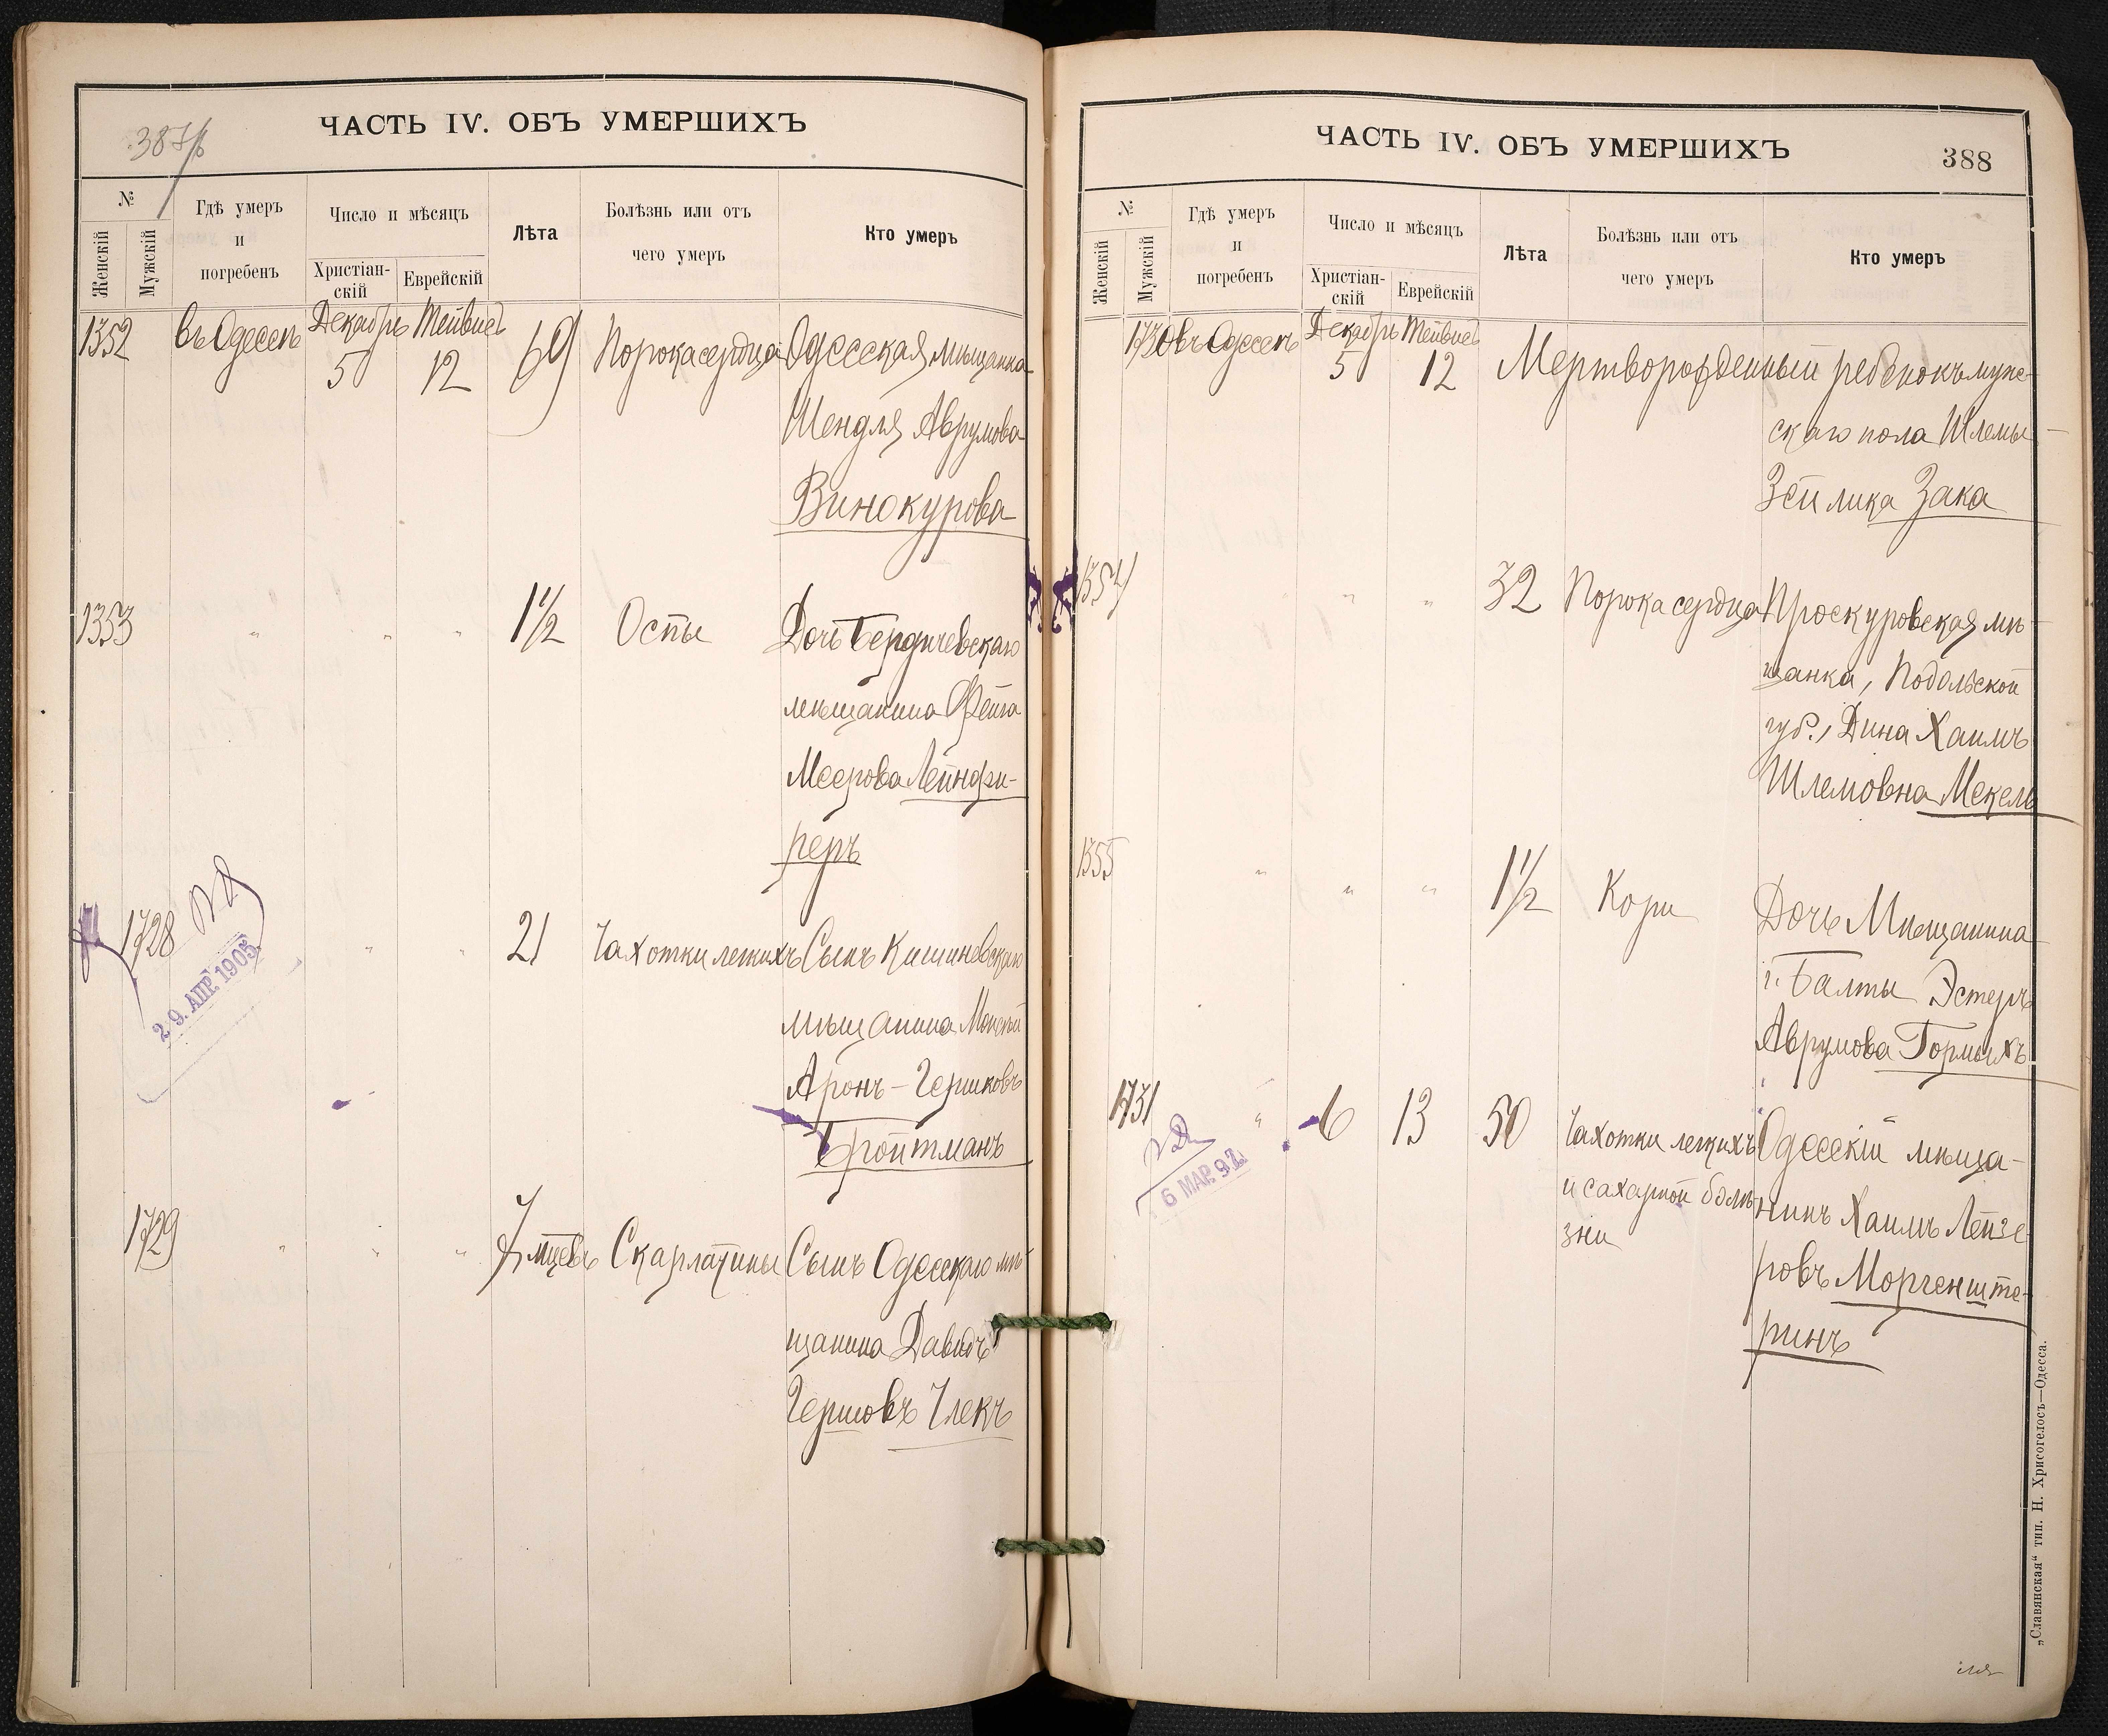 387/б
ЧАСТЬ IV. ОБЪ УМЕРШИХЪ
№
Женскій
Мужскій
Гдѣ умеръ
и
погребенъ
Число и мѣсяцъ
Христіан-
скій
Еврейскій
Лѣта
Болѣзнь или отъ
чего умеръ
Кто умеръ
1352 въ Одессѣ Декабрь 5 Тейвиєъ 12 69 Порока сердца Одесская мѣщанка
Шендля Аврумова
Винокурова
1353 " " " 1½ Оспы Дочь Бердичевскаго
мѣщанина Фейга
Меерова Лейнфи-
реръ
1728 " " 21 Чахотки легкихъ Сынъ Кишиневскаго
29. АПР. 1905
мѣщанина Мойсей
Аронъ-Гершковъ
Бройтманъ
1729 " " " 7 мцевъ Скарлатины Сынъ Одесскаго мѣ-
щанина Давидъ
Гершовъ Глекъ
ЧАСТЬ IV. ОБЪ УМЕРШИХЪ
388
№
Женскій
Мужскій
Гдѣ умеръ
и
погребенъ
Число и мѣсяцъ
Христіан-
скій
Еврейскій
Лѣта
Болѣзнь или отъ
чего умеръ
Кто умеръ
1730 въ Одессѣ Декабрь 5 Тейвиєъ 12 Мертворожденный ребенокъ муж-
скаго пола Шлемы
Зейлика Зака
1354 " " " 32 Порока сердца Проскуровская мѣ-
щанка, Подольской
губ., Дина Хаимъ
Шлемовна Мекель
1355 " " " 1½ Кори Дочь Мѣщанина
г. Балты Эстеръ
Аврумова Гормыхъ
1731 " 6 13 50 Чахотки легкихъ Одесскій мѣща-
6 МАР. 97
и сахарной болѣ- нинъ Хаимъ Лейзе-
зни
ровъ Моргенште-
ринъ
„Славянская“ тип. Н. Хрисогелосъ—Одесса.